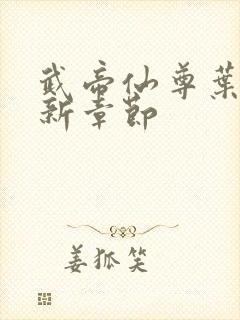 武帝仙尊葉
新章節
姜狐笑